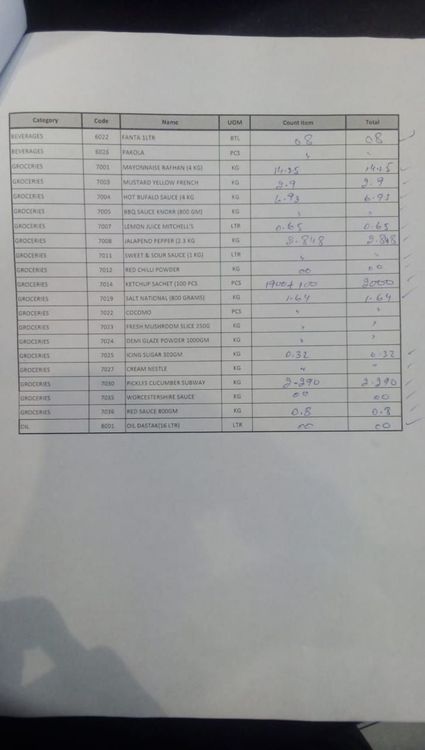 Category Code Name UOM Count Item Total
BEVERAGES 6022 FANTA 1LTR BTL 08 08
BEVERAGES 6026 PAKOLA PCS
GROCERIES 7001 MAYONNAISE RAFHAN (4 KG) KG
GROCERIES 7003 MUSTARD YELLOW FRENCH KG 2.9 2.9
GROCERIES 7004 HOT BUFALO SAUCE (4 KG KG 6.93 6.93
GROCERIES 7005 BBQ SAUCE KNORR (800 GM) KG
GROCERIES 7007 LEMON JUICE MITCHELL'S LTR 0.65 0.65
GROCERIES 7008 JALAPENO PEPPER (2.3 KG KG 2.848 2.848
GROCERIES 7011 SWEET & SOUR SAUCE (1 KG) LTR
GROCERIES 7012 RED CHILLI POWDER KG 00 00
GROCERIES 7014 KETCHUP SACHET (100 PCS PCS 1900+100 2000
GROCERIES 7019 SALT NATIONAL (800 GRAMS) KG 1.64 1.64
GROCERIES 7022 COCOMO PCS
GROCERIES 7023 FRESH MUSHROOM SLICE 250G KG
GROCERIES 7024 DEMI GLAZE POWDER 1000GM KG
GROCERIES 7025 ICING SUGAR 300GM KG 0.32 0.32
GROCERIES 7027 CREAM NESTLE KG
GROCERIES 7030 PICKLES CUCUMBER SUBWAY KG 2.290 2.290
GROCERIES 7035 WORCESTERSHIRE SAUCE KG 00 00
GROCERIES 7036 RED SAUCE 800GM KG 0.8 0.8
OIL 8001 OIL DASTAK(16 LTR) LTR 00 00